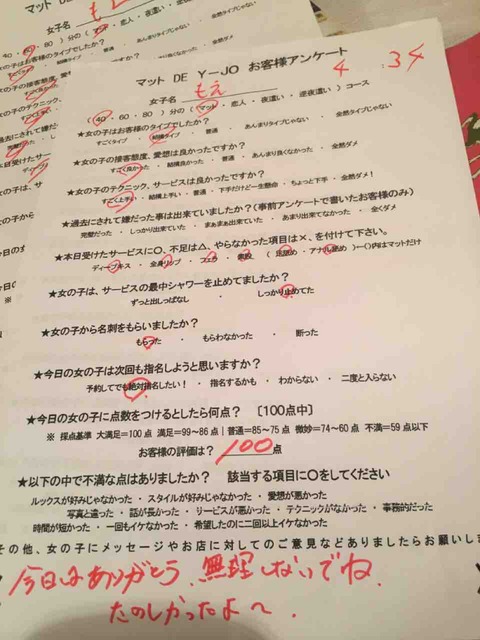 マット DE Y－JO お客様アンケート
4 : 34
女子名 もえ
( 40 ・ 60 ・ 80 ) 分の ( マット ・ 恋人 ・ 夜這い ・ 逆夜這い ) コース
★女の子はお客様のタイプでしたか？
すごくタイプ ・ 結構タイプ ・ 普通 ・ あんまりタイプじゃない ・ 全然タイプじゃない
★女の子の接客態度、愛想は良かったですか？
すごく良かった ・ 結構良かった ・ 普通 ・ あんまり良くなかった ・ 全然ダメ
★女の子のテクニック、サービスは良かったですか？
すごく上手い ・ 結構上手い ・ 普通 ・ 下手だけど一生懸命 ・ ちょっと下手 ・ 全然ダメ！
★過去にされて嫌だった事は出来ていましたか？(事前アンケートで書いたお客様のみ)
完璧だった ・ しっかり出来ていた ・ まぁまぁ出来ていた ・ あまり出来てなかった ・ 全くダメ
★本日受けたサービスに○、不足は△、やらなかった項目は×、を付けて下さい。
ディープキス ・ 全身リップ ・ フェラ ・ 素股 ( 足舐め ・ アナル舐め )←()内はマットだけ
★女の子は、サービスの最中シャワーを止めてましたか？
ずっと出しっぱなし ・ しっかり止めてた
★女の子から名刺をもらいましたか？
もらった ・ もらわなかった ・ 断った
★今日の女の子は次回も指名しようと思いますか？
予約してでも絶対指名したい！ ・ 指名するかも ・ わからない ・ 二度と入らない
★今日の女の子に点数をつけるとしたら何点？ 〔100点中〕
※ 採点基準 大満足＝100点 満足＝99～86点｜普通＝85～75点 微妙＝74～60点 不満＝59点以下
お客様の評価は？ 100 点
★以下の中で不満な点はありましたか？ 該当する項目に○をしてください
ルックスが好みじゃなかった ・ スタイルが好みじゃなかった ・ 愛想が悪かった
写真と違った ・ 話が長かった ・ サービスが悪かった ・ テクニックがなかった ・ 事務的だった
時間が短かった ・ 一回もイケなかった ・ 希望したのに二回以上イケなかった
その他、女の子にメッセージやお店に対してのご意見などありましたらお願いしま
今日はありがとう、無理しないでね。
たのしかったよ～.